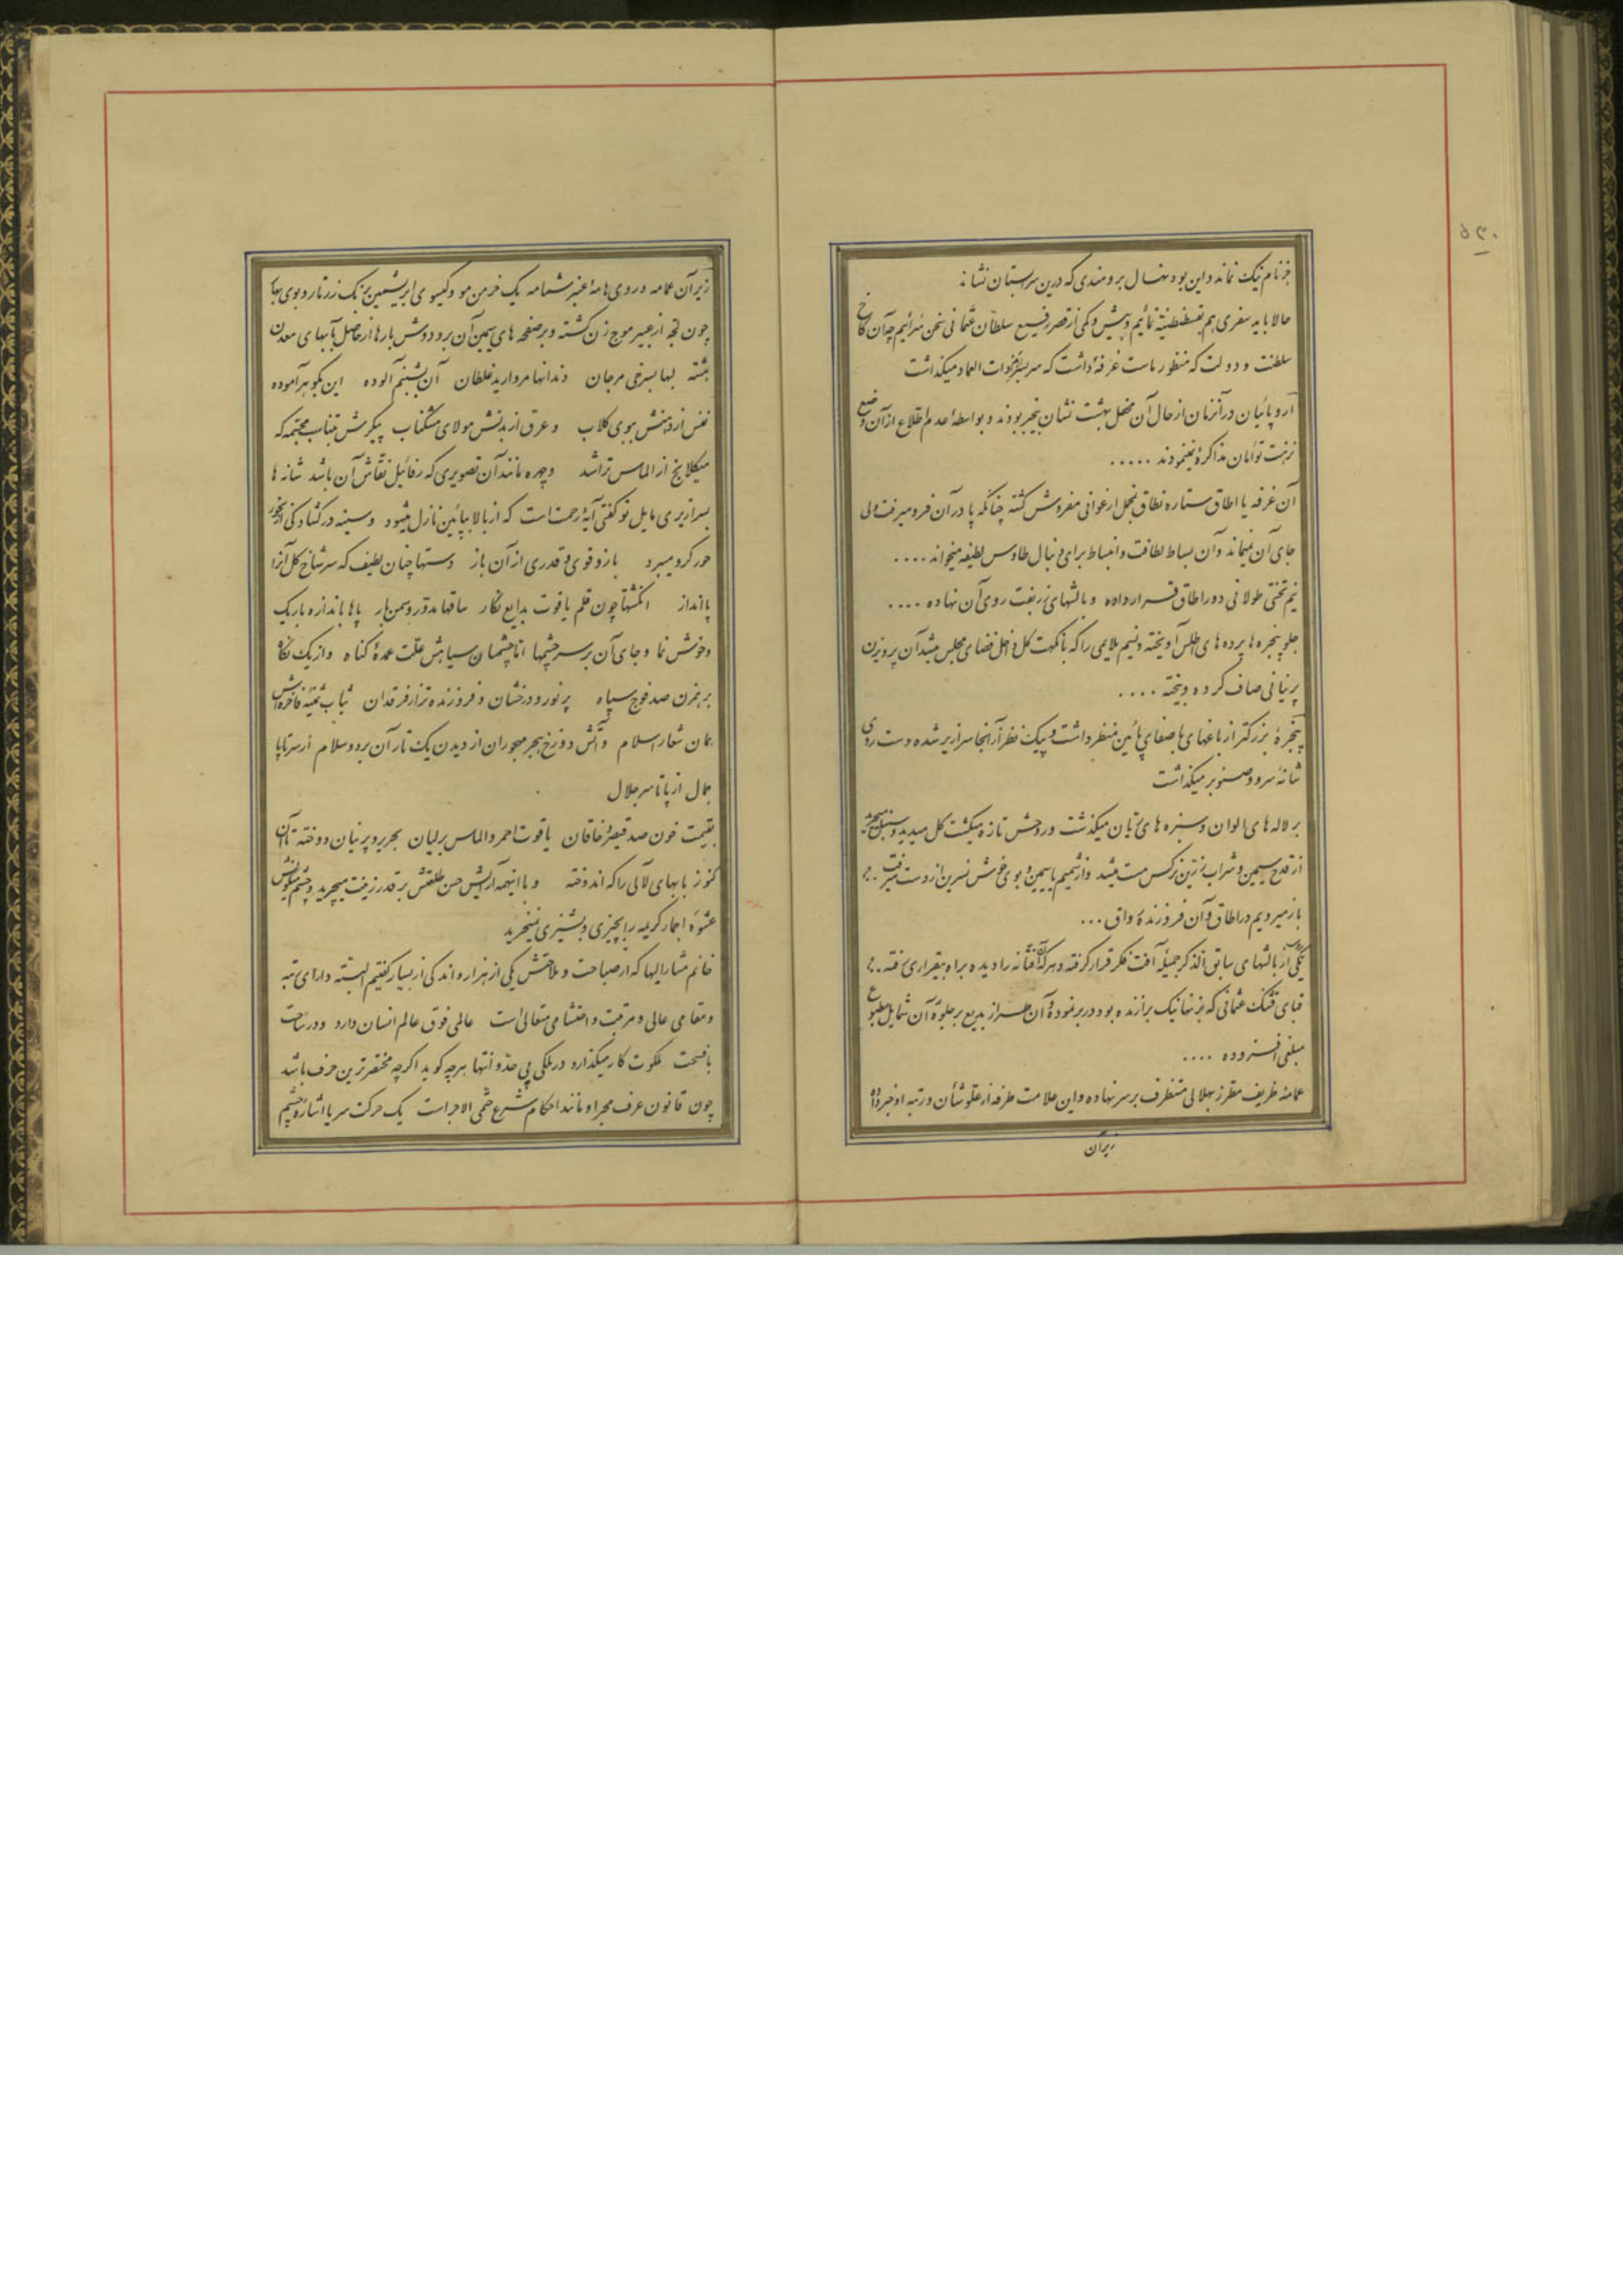 جز نام نیک نماند و این بود نهال برومندی که درین سرابستان نشاند
حالا باید سفری هم بقسطنطنیه نمائیم و بیش و کمی از قصر رفیع سلطان عثمانی سخن سرائیم چه آن کاخ
سلطنت و دولت که منظور ماست غرفهٔ داشت که سر بسر ذات العماد میگذاشت
اروپائیان در آنزمان از حال آن محفل بهشت نشان بیخبر بودند و بواسطهٔ عدم اطلاع از آن وضع
نزهت توأمان مذاکرهٔ نمینمودند .....
آن غرفه یا اطاق ستاره نطاق بمخمل ارغوانی مفروش گشته چنانکه پا در آن فرو میرفت ولی
جای آن نمیماند و آن بساط لطافت و انبساط برای دنبال طاوس لطیفه میخواند ....
نیم تختی طولانی دور اطاق قرار داده و بالشهای زربفت روی آن نهاده ....
جلو پنجره ها پرده های اطلس آویخته و نسیم ملایمی را که با نکهت گل داخل فضای مجلس میشد آن پرویزن
پرنیانی صاف کرده و بیخته ....
پنجرهٔ بزرگتر از باغهای با صفای پائین منظر داشت و پیک نظر از آنجا سرازیر شده دست روی
شانهٔ سرو و صنوبر میگذاشت
بر لاله های الوان و سبزه های تابان میگذشت و روحش تازه میگشت گل میدید و سنبل میچید
از قدح سیمین و شراب زرین نرگس مست میشد و از شمیم یاسمین و بوی خوش نسرین از دست میرفت ..
باز میرویم در اطاق و آن فروزندهٔ واق ...
یکی از بالشهای سابق الذکر جمیلهٔ آفت فکر قرار گرفته و هر که آن فتانه را دیده براه بیقراری رفته ..
قبای قشنگ عثمانی که بر تنها نیک برازنده بود در بر نموده و آن طراز بدیع بر جلوهٔ آن شمایل مطبوع
مبلغی افزوده ....
عمامهٔ ظریف مطرز بهلالی متظرف بر سر نهاده و این علامت طرفه از علو شأن و رتبه او خبر داده
زیر آن
۵۳۰
زیر آن عمامه در وی هامهٔ عنبر شمامه یک خرمن مو و گیسوی ابریشمین برنگ زر تار و بوی بها
چون لجه از عبیر موج زن گشته و بر صفحه های سیمین آن بر و دوش بارها از حاصل با بهای معدن
هشته لبها بسرخی مرجان دندانها مروارید غلطان آن بشبنم آلوده این بگوهر آموده
نفس از دهنش ببوی گلاب و عرق از بدنش مولای مشکناب پیکرش جناب مجتمه که
میکلانج از الماس تراشد و چهره مانند آن تصویری که رفائیل نقاش آن باشد شانه ها
بسرازیری مایل تو گفتی آیهٔ رحمت است که از بالا بپائین نازل میشود و سینه در گشادگی از نحور
حور گرو میبرد بازو قوی و قدری از آن باز دستها چنان لطیف که سر شاخ گل آنرا
پا انداز انگشتها چون قلم یاقوت بدایع نگار ساقها مدور و سمن بار پاها باندازه باریک
و خوش نما و جای آن بر سر چشمها اما چشمان سیاهش علت عمدهٔ گناه و از یک نگاه
برهمزن صد فوج سپاه پر نور و درخشان و فروزنده تر از فرقدان ثیاب ثمینه فاخره اش
همان شعار اسلام و آتش دوزخ هجر مهجوران از دیدن یک تار آن برد و سلام از سر تا پا
جمال از پا تا سر جلال
بقیمت خون صد قیصر و خاقان یاقوت احمر و الماس برلیان بحریر و پرنیان دوخته تا آن
کنوز با بهای لآلی را که اندوخته و با اینهمه آرایش حسن طلعتش بر قدر زینت میچربد و چشم میگونش
عشوه احجار کریمه را بچیزی و پشیزی نمیخرید
خانم مشار الیها که از صباحت و ملاحتش یکی از هزار و اندکی از بسیار گفتیم البته دارای رتبه
و مقامی عالی و مرقبت و احتشامی متعالی است عالمی فوق عالم انسان دارد و در ساحت
با فسحت ملکوت کار میگذارد در ملکی بی حد و انتها هر چه گوید اگر چه مختصر ترین حرف باشد
چون قانون عرف مجرا و مانند احکام شرع حتمی الاجراست یک حرکت سر یا اشارهٔ چشم